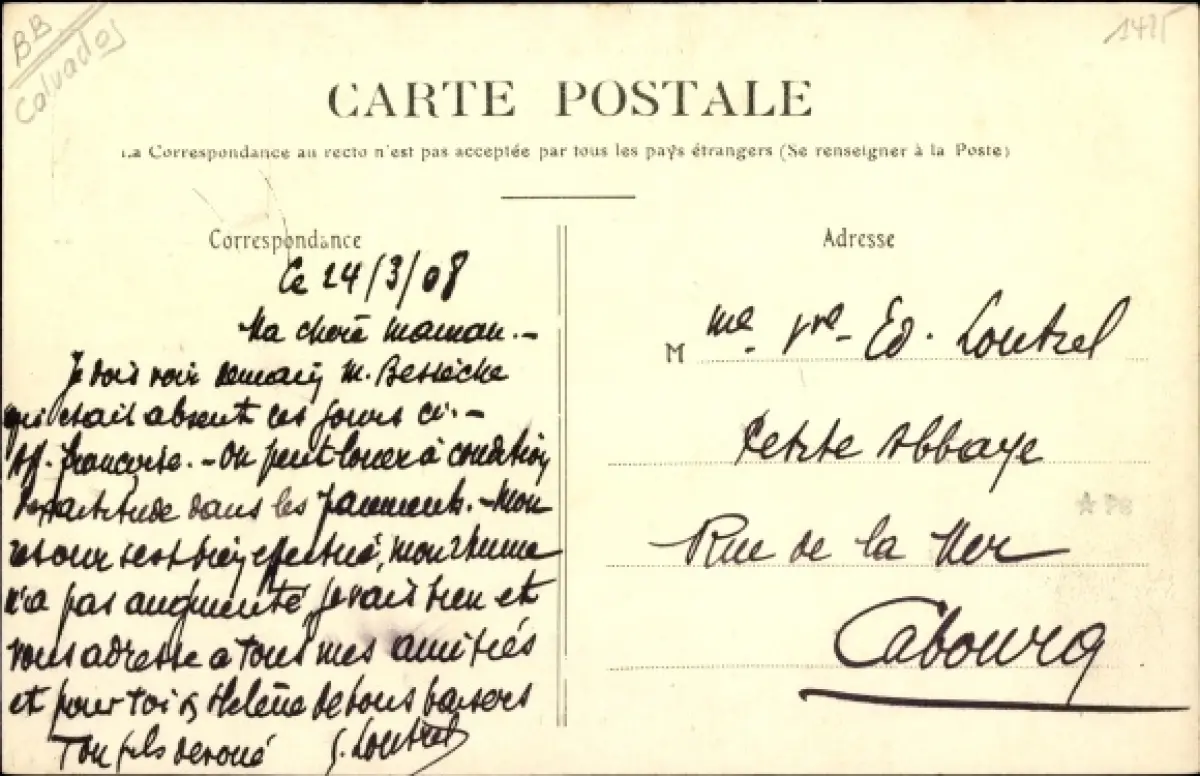 BB
Calvados
CARTE POSTALE
La Correspondance au recto n'est pas acceptée par tous les pays étrangers (Se renseigner à la Poste)
Correspondance
Ce 24/3/08
Ma chère maman.-
Je dois voir demain M.
qui était absent ces jours ci.-
Aff. françoise.- On peut louer à condition
d'exactitude dans les paiements.- Mon
retour s'est bien effectué, mon rhume
n'a pas augmenté, je vais bien et
vous adresse à tous mes amitiés
et pour toi & Helène de bons baisers
Ton fils dévoué G. Loutrel
Adresse
M me. Vve- Ed. Loutrel
Petite Abbaye
Rue de la Mer
Cabourg